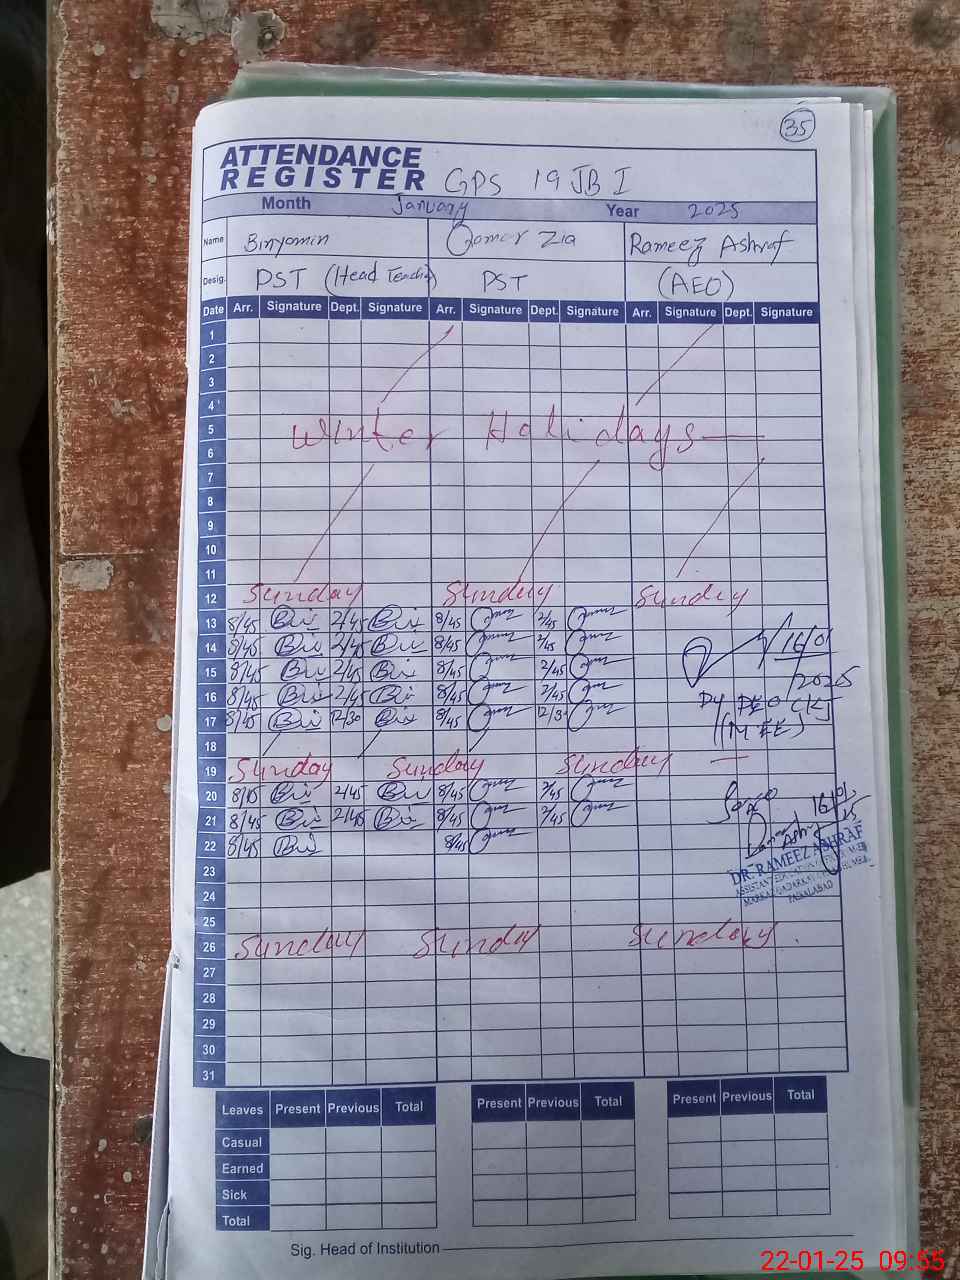 35
ATTENDANCE
REGISTER GPS 19 JB I
Month January Year 2025
Name Binyamin Qamar Zia Rameez Ashraf
Desig. PST (Head Teacher) PST (AEO)
Date Arr. Signature Dept. Signature Arr. Signature Dept. Signature Arr. Signature Dept. Signature
1
2
3
4
5 Winter Holidays
6
7
8
9
10
11
12 Sunday Sunday Sunday
13 8/45 2/45 8/45 2/45
14 8/45 2/45 8/45 2/45 16/01
15 8/45 2/45 8/45 2/45 /2025
16 8/45 2/45 8/45 2/45 Dy DEO
17 8/45 12/30 8/45 12/30 (M-EE)
18
19 Sunday Sunday Sunday
20 8/45 2/45 8/45 2/45
21 8/45 2/45 8/45 2/45 16/01
22 8/45 8/45 25
DR. RAMEEZ ASHRAF
23
FAISALABAD
24
25
26 Sunday Sunday Sunday
27
28
29
30
31
Leaves Present Previous Total Present Previous Total Present Previous Total
Casual
Earned
Sick
Total
Sig. Head of Institution
22-01-25 09:55